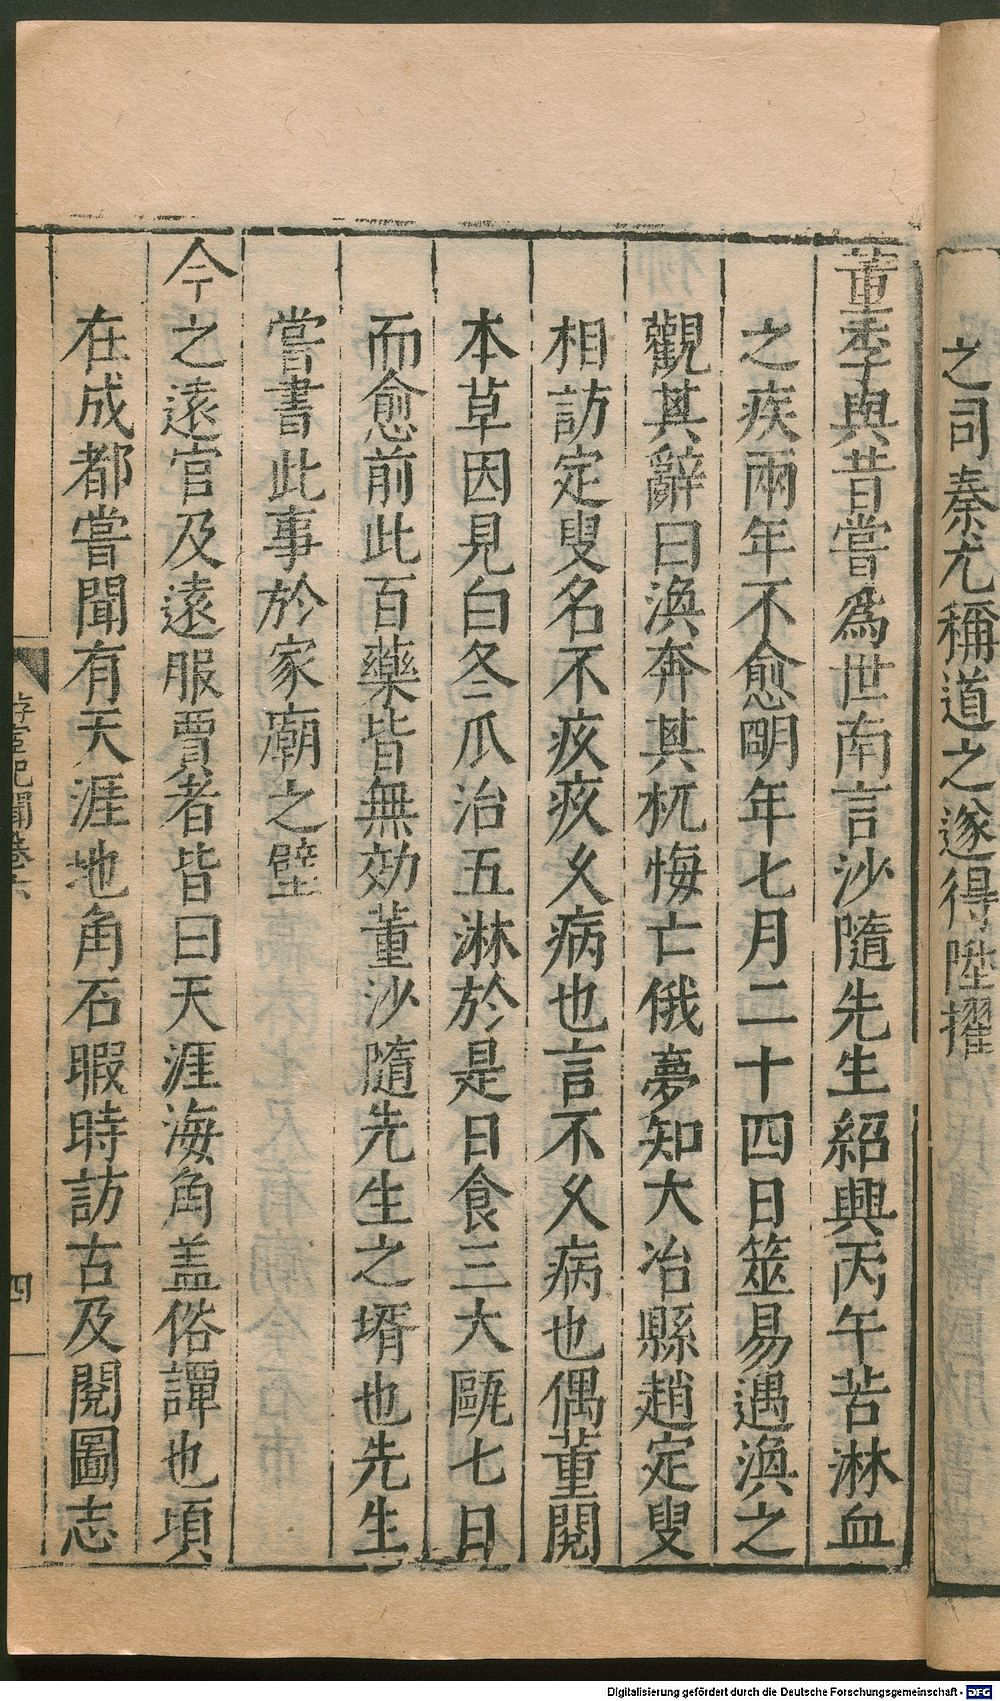 之司秦尤稱道之遂得陞擢
董季與昔嘗爲世南言沙隨先生紹興丙午苦淋血
之疾兩年不愈明年七月二十四日筮易遇渙之
觀其辭曰渙奔其杌悔亡俄夢知大冶縣趙定叟
相訪定叟名不疚疚久病也言不久病也偶董閱
本草因見白冬瓜治五淋於是日食三大甌七日
而愈前此百藥皆無効董沙隨先生之壻也先生
嘗書此事於家廟之壁
今之遠官及遠服賈者皆曰天涯海角盖俗譚也頃
在成都嘗聞有天涯地角石暇時訪古及閱圖志
游宦紀聞卷六
四
Digitalisierung gefördert durch die Deutsche Forschungsgemeinschaft - DFG